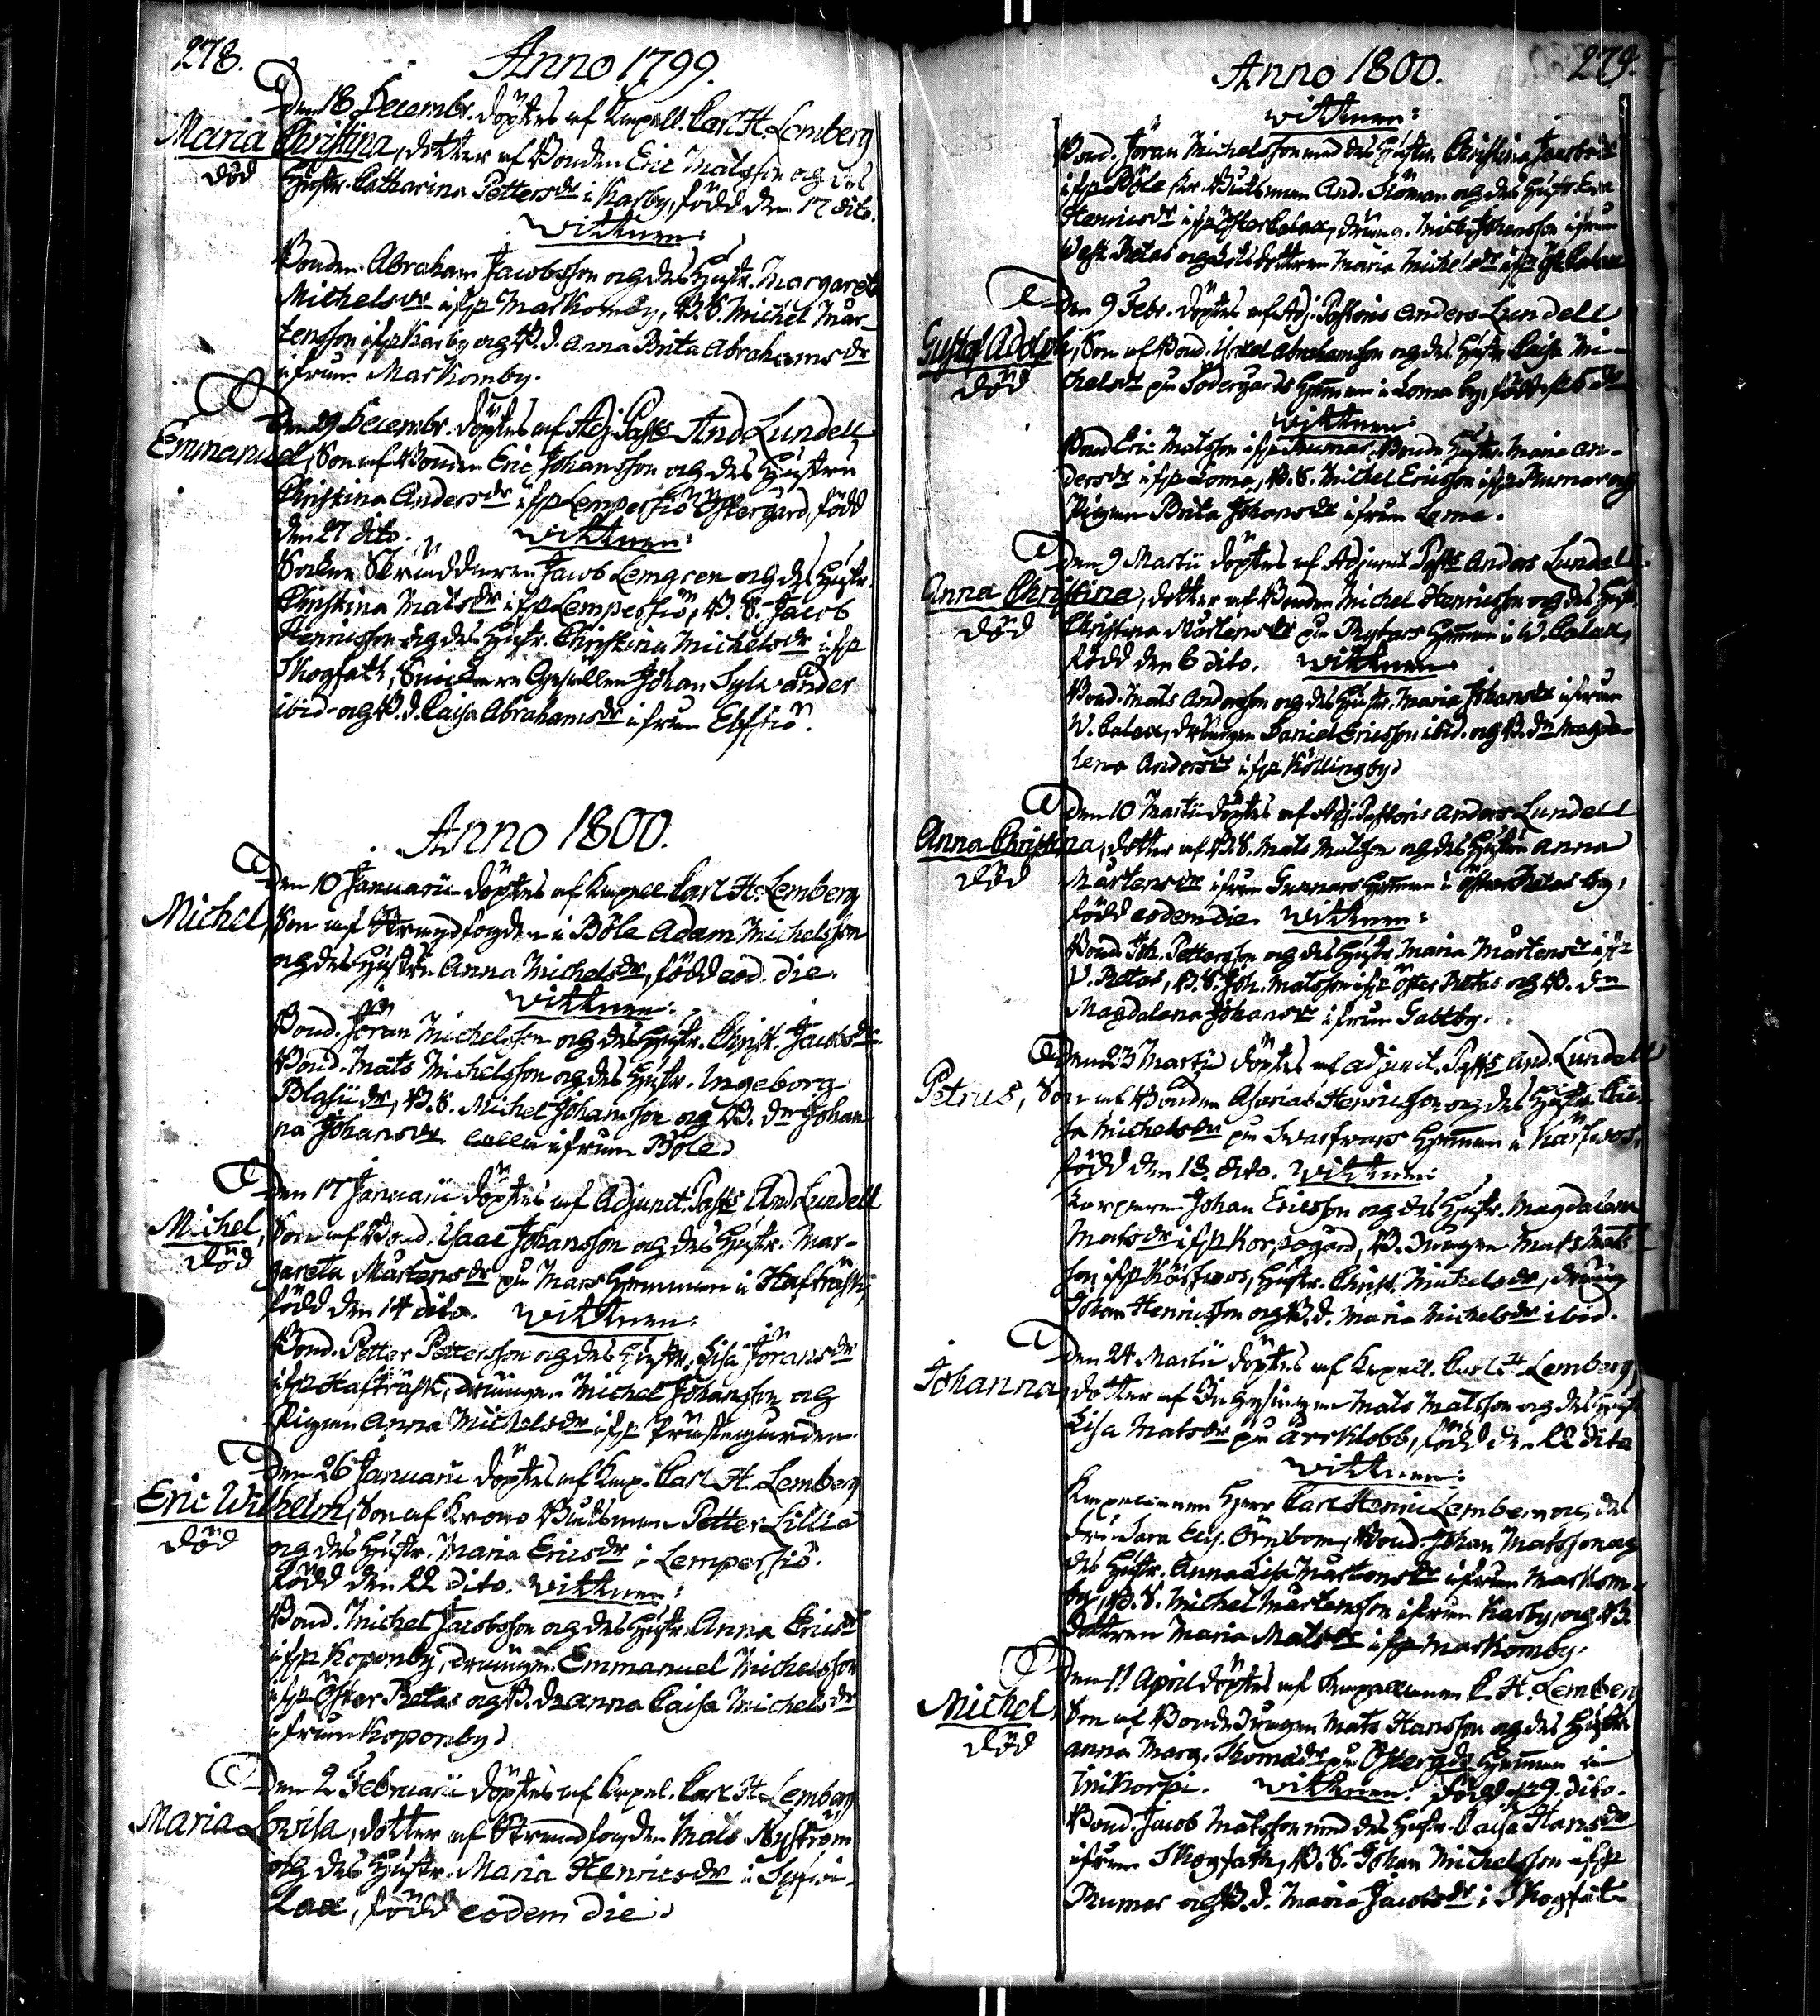 278.
Anno 1799.
Den 18 Decembr. döptes af Kapell. Carl H. Lemberg
Maria Christina, dotter af Bonden Eric Matsson og des
död
Hustr. Catharina Pettersdr i Karby, född den 17 dito.
Wittnen:
Bonden Abraham Jacobsson og des Hustr. Margareta
Michelsdr ifrån Markomby, B. S. Michel Mår-
tensson ifrån Karby og B. d. Anna Brita Abrahamsdr
ifrån Markomby.
Den 29 Decembr. döptes af Adj. Past: And. Lundell
Emmanuel, Son af Bonden Eric Johansson og des Hustru
Christina Andersdr ifrån Lempersiö Östergård, född
den 27 dito.
Wittnen:
Sockne Skräddaren Jacob Lemgren og des Hustr.
Christina Matsdr ifrån Lempersiö, B. S. Jacob
Henricsson og des Hustr. Christina Michelsdr ifrån
Skogsatt, Gesällen Johan Sylvander
ibid. og B. d. Caisa Abrahamsdr ifrån Elfsiö.
Anno 1800.
Den 10 Januarii döptes af Kapell. Carl H. Lemberg
Michel, Son af Strandfogden i Böle Adam Michelsson
og des Hustru Anna Michelsdr, född eod. die.
Wittnen:
Bond. Jöran Michelsson og des Hustr. Christ. Jacobsdr
Bond. Mats Michelsson og des Hustr. Ingeborg
Blasiidr, B. S. Michel Johansson og B. dr Johan
na Johansdr alla ifrån Böle.
Den 17 Januarii döptes af Adjunct. Past: And. Lundell
Michel, Son af Bond. Isaac Johansson og des Hustr. Mar-
död
gareta Mårtensdr på Mars Hemman i Hafträsk,
född den 14 dito. Wittnen:
Bond. Petter Pettersson og des Hustr. Lisa Jöransdr
ifrån Hafträsk, drängen Michel Johansson og
Pigan Anna Michelsdr ifrån Prästegården.
Den 26 Januarii döptes af Kap. Carl H. Lemberg
Eric Wilhelm, Son af Krono Båtsman Petter Lillia
död
og des Hustr. Maria Ericsdr i Lempersiö.
född den 22 dito. Wittnen:
Bond. Michel Jacobsson og des Hustr. Anna Ericsdr
ifrån Koponby, drängen Emmanuel Michelsson
ifrån Öster Retas og B. dr Anna Caisa Michelsdr
ifrån Koponby.
Den 2 Februarii döptes af Kapel. Carl H. Lemberg
Maria Lovisa, dotter af Strandfogden Mats Nyström
og des Hustr. Maria Henricsdr i
Lax, född eodem die.
279.
Anno 1800.
Wittnen:
Bond. Jöran Michelsson med des Hustru Christina Jacobsdr
ifrån Böle Kr. Båtsman And. og des Hustr. Lena
Henricsdr ifrån Österkalax, dräng. Johansson ifrån
West. Retas og dotteren Maria Michelsdr ifrån Öst. Calax
Den 9 Febr. döptes af Adj. Pastoris Anders Lundell
Gustaf Adolph, Son af Bond. Israel Abrahamson og des Hustr. Caisa Mi-
död
chelsdr på Södergårds Hemman i Loma by, född 
Wittnen:
Bond Eric Matsson ifrån Rumar, Bonde Hustr. Maria An-
dersdr ifrån Loma, B. S. Michel Ericsson ifrån Rumar og
Pigan Brita Johansdr ifrån Loma.
Den 9 Martii döptes af Adjunct Past: Anders Lundell
Anna Christina, dotter af Bonden Michel Henricsson og des Hust.
död
Christina Mårtensdr på Rytars Hemman i W. Calax,
född den 6 dito. Wittnen
Bond. Mats Andersson og des Hustr. Maria Johansdr ifrån
W. Calax, drängen Daniel Ericsson ibid. og B. dr Magda-
lena Andersdr ifrån Killingby.
Den 10 Martii döptes af Adj. Pastoris Anders Lundell
Anna Christina, dotter af B. S. Mats Matsson og des Hustru Anna
död
Mårtensdr ifrån Gunnars Hemman i Öster Retas by,
född eodem die Wittnen:
Bond. Joh. Pettersson og des Hustr. Maria Mårtensdr ifrån
V. Retas, B. S. Joh. Matsson ifrån Öster Retas og B. dr
Magdalena Johansdr ifrån Gastby.
Den 23 Martii döptes af adjunct. Past: And. Lundell
Petrus, Son af Bonden Asarias Henricsson og des Hustr. Cai-
sa Michelsdr på Svartvars Hemman i
född den 18 dito. Wittnen:
Johan Ericsson og des Hustr. Magdalena
Matsdr ifrån Korsogård, B. drängen Mats Mats
son ifrån Hustr. Christ. Michelsdr, dräng
Johan Henricsson og B. d. Maria Michelsdr ibid.
Den 24 Martii döptes af Kapell. Carl H. Lemberg,
Johanna, dotter af Inhysingen Mats Matsson og des Hust.
Lisa Matsdr på årsklobb, född den 22 dito
Wittnen:
Kapellanen Herr Carl Henric Lemberg og des
Fru Sara Elis. Örnbom, Bond. Johan Matsson og
des Hustr. Anna Lisa Mårtensdr ifrån Markom-
by, B. S. Michel Mårtensson ifrån Karby, og B.
dottren Maria Matsdr ifrån Markomby.
Den 11 April döptes af Kapellanen C. H. Lemberg
Michel, Son af Bondedrängen Mats Hansson og des Hustr.
död
Anna Marg. Thomasdr på Östergårds Hemman i
Inikorpi. Wittnen: född d. 9. dito.
Bond. Jacob Matsson med des Hustr. Caisa Hansdr
ifrån Skogsatt, B. S. Johan Michelsson ifrån
Rumar og B. d. Maria Jacobsdr i Skogsät